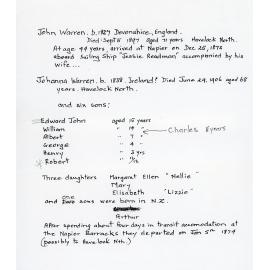 John Warren. b. 1827 Devonshire, England.
Died Sept 5 1897 aged 71 years Havelock North.
At age 49 years, arrived at Napier on Dec 25, 1878
aboard Sailing Ship "Jessie Readman" accompanied by his
wife...
Johanna Warren. b. 1838. Ireland? Died June 29, 1906 aged 68
years. Havelock North.
and six sons:
Edward John aged 15 years
William " 14 "
Charles 8 years
Albert " 7 "
George " 4 "
Henry " 3 yrs
* Robert "
Three daughters Margaret Ellen "Nellie"
Mary
Elizabeth "Lizzie"
one
and sons were born in N.Z.
Arthur
After spending about four days in transit accomodation at
The Napier Barracks they departed on Jan 5th 1879
(possibly to Havelock Nth.)